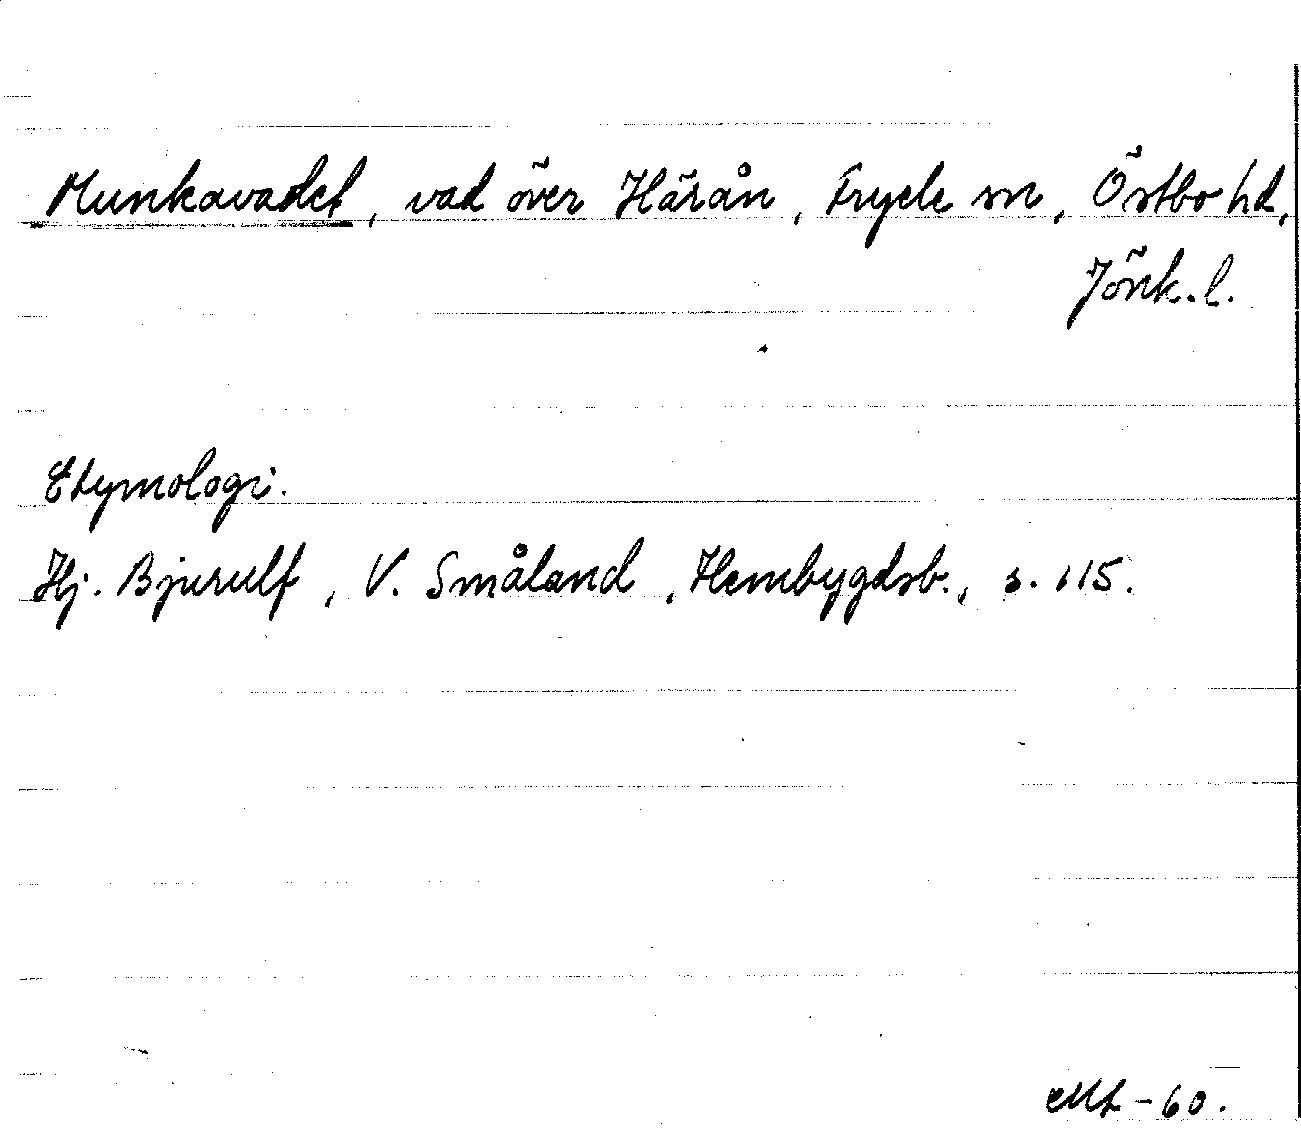 Munkavadet, vad över Härån, Fryele sn, Östbo hd,
Jönk. l.
Etymologi.
Hj. Bjurulf, V. Småland, Hembygdsb., s. 115.
-60.